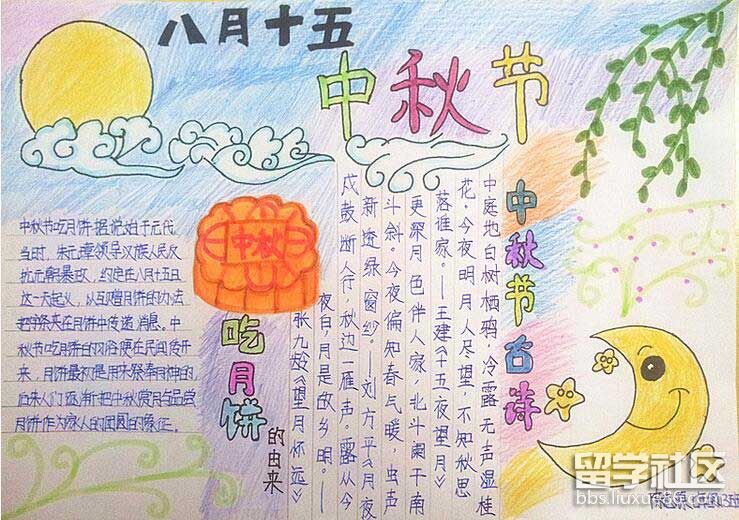 八月十五
中秋节
中秋节吃月饼据说始于元代
当时,朱元璋领导汉族人民反
抗元朝暴政,约定在八月十五日
这一天起义,以互赠月饼的办法
把字条夹在月饼中传递消息。中
秋节吃月饼的习俗便在民间传开
来,月饼最初是用来祭奉月神的
后来人们逐渐把中秋赏月与品尝
月饼作为家人的团圆的象征。
中秋
吃月饼
的由来
中秋节古诗
中庭地白树栖鸦,冷露无声湿桂
花。今夜明月人尽望,不知秋思
落谁家。—王建《十五夜望月》
更深月色伴人家,北斗阑干南
斗斜。今夜偏知春气暖,虫声
新透绿窗纱。—刘方平《月夜
戍鼓断人行,秋边一雁声。露从今
夜白,月是故乡明。—
张九龄《望月怀远》
留学社区